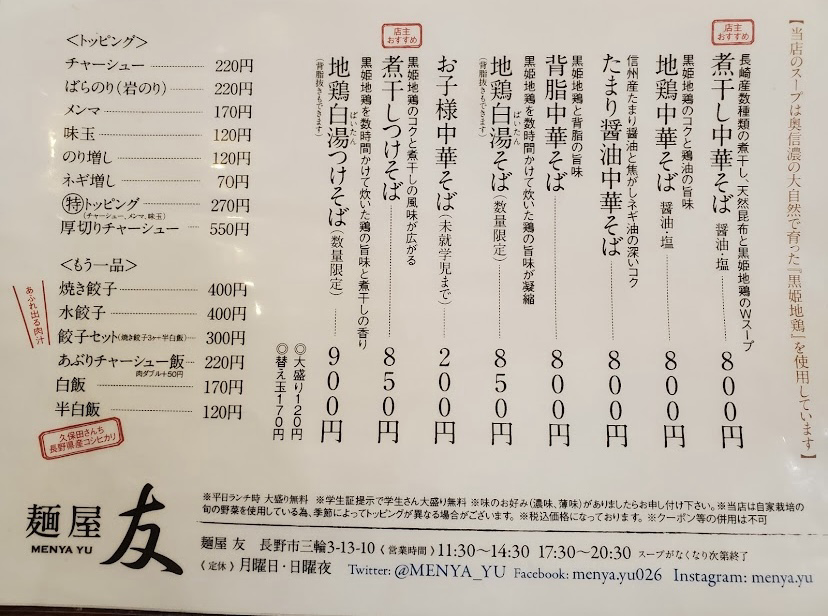 【当店のスープは奥信濃の大自然で育った『黒姫地鶏』を使用しています】
店主
おすすめ
長崎産数種類の煮干し、天然昆布と黒姫地鶏のWスープ
煮干し中華そば 醤油・塩 800円
黒姫地鶏のコクと鶏油の旨味
地鶏中華そば 醤油・塩 800円
信州産たまり醤油と焦がしネギ油の深いコク
たまり醤油中華そば 800円
黒姫地鶏と背脂の旨味
背脂中華そば 800円
黒姫地鶏を数時間かけて炊いた鶏の旨味が凝縮
ぱいたん
地鶏白湯そば(数量限定) 850円
(背脂抜きもできます)
お子様中華そば(未就学児まで) 200円
店主
おすすめ
黒姫地鶏のコクと煮干しの風味が広がる
煮干しつけそば 850円
黒姫地鶏を数時間かけて炊いた鶏の旨味と煮干しの香り
ぱいたん
地鶏白湯つけそば(数量限定) 900円
(背脂抜きもできます)
◎大盛り120円
◎替え玉170円
<トッピング>
チャーシュー 220円
ばらのり(岩のり) 220円
メンマ 170円
味玉 120円
のり増し 120円
ネギ増し 70円
特トッピング 270円
(チャーシュー、メンマ、味玉)
厚切りチャーシュー 550円
<もう一品>
焼き餃子 400円
水餃子 400円
餃子セット(焼き餃子3ヶ+半白飯) 300円
あぶりチャーシュー飯 220円
肉ダブル+50円
白飯 170円
半白飯 120円
あふれ出る肉汁
久保田さんち
長野県産コシヒカリ
麺屋 友
MENYA YU
※平日ランチ時 大盛り無料 ※学生証提示で学生さん大盛り無料 ※味のお好み(濃味、薄味)がありましたらお申し付け下さい。※当店は自家栽培の
旬の野菜を使用している為、季節によってトッピングが異なる場合がございます。※税込価格になっております。※クーポン等の併用は不可
麺屋 友 長野市三輪3-13-10 〈営業時間〉11:30〜14:30 17:30〜20:30 スープがなくなり次第終了
〈定休〉月曜日・日曜夜 Twitter: @MENYA_YU Facebook: menya.yu026 Instagram: menya.yu